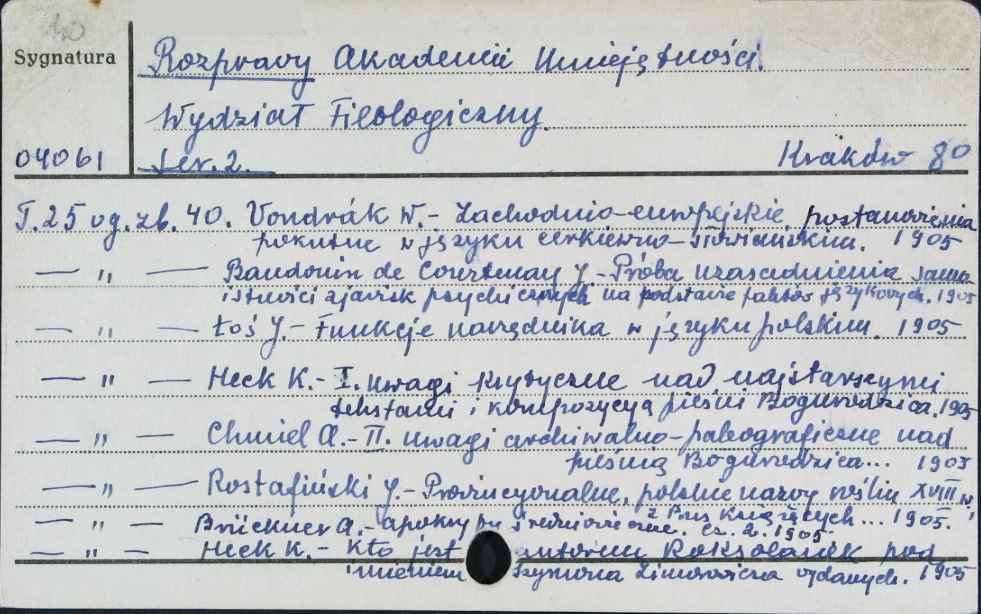 40
Sygnatura
Rozprawy Akademii Umiejętności.
Wydział Filologiczny.
04061
Ser. 2.
Kraków 8°
T. 25 og. zb. 40. Vondrák W. - Zachodnio-europejskie postanowienia
pokutne w języku cerkiewno-słowiańskim. 1905
— " — Baudouin de Courtenay J. - Próba uzasadnienia samo
istności zjawisk psychicznych na podstawie faktów językowych. 1905
— " — Łoś J. - Funkcje narzędnika w języku polskim. 1905
— " — Heck K. - I. Uwagi krytyczne nad najstarszymi
tekstami i kompozycyą pieśni Bogurodzica. 1905
— " — Chmiel A. - II. Uwagi archiwalno-paleograficzne nad
pieśnią Bogurodzica... 1905
— " — Rostafiński J. - Prowincyonalne, polskie nazwy roślin XVIII w.
z Prus Książęcych... 1905.
— " — Brückner A. - Apokryfy średniowieczne. Cz. 2. 1905.
— " — Heck K. - Kto jest autorem Roksolanek pod
imieniem Szymona Zimorowicza wydanych. 1905